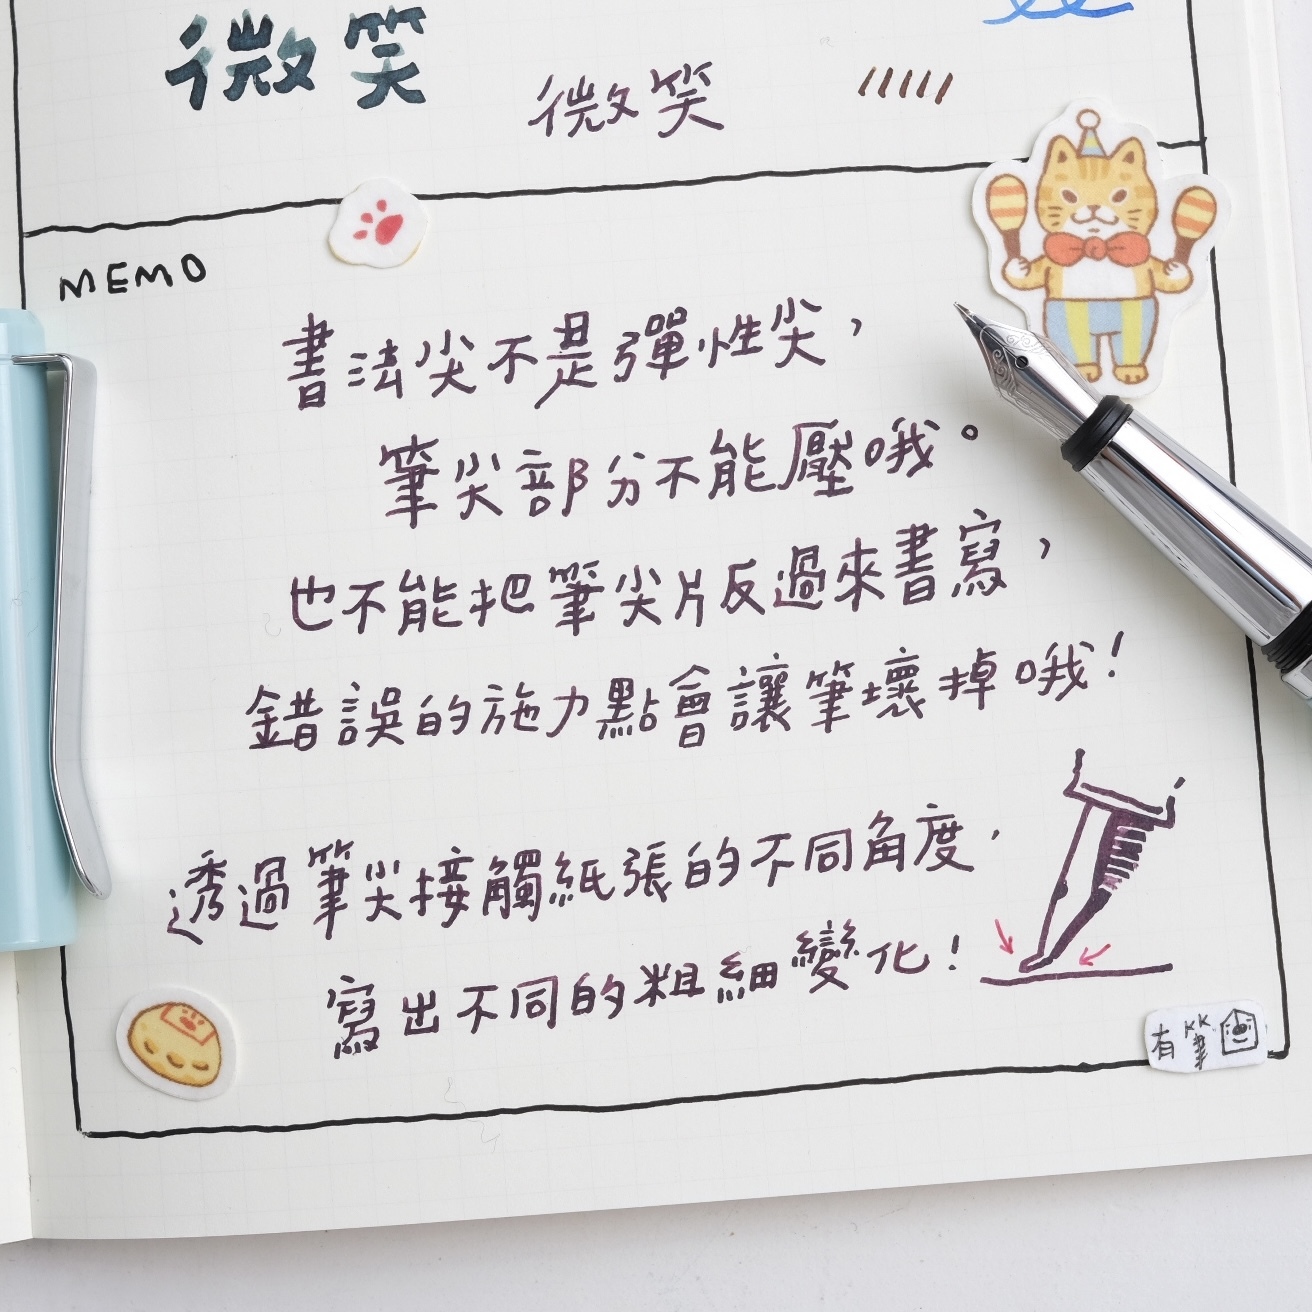 微笑
微笑
MEMO
書法尖不是彈性尖，
筆尖部分不能壓哦。
也不能把筆尖片反過來書寫，
錯誤的施力點會讓筆壞掉哦！
透過筆尖接觸紙張的不同角度，
寫出不同的粗細變化！
有筆